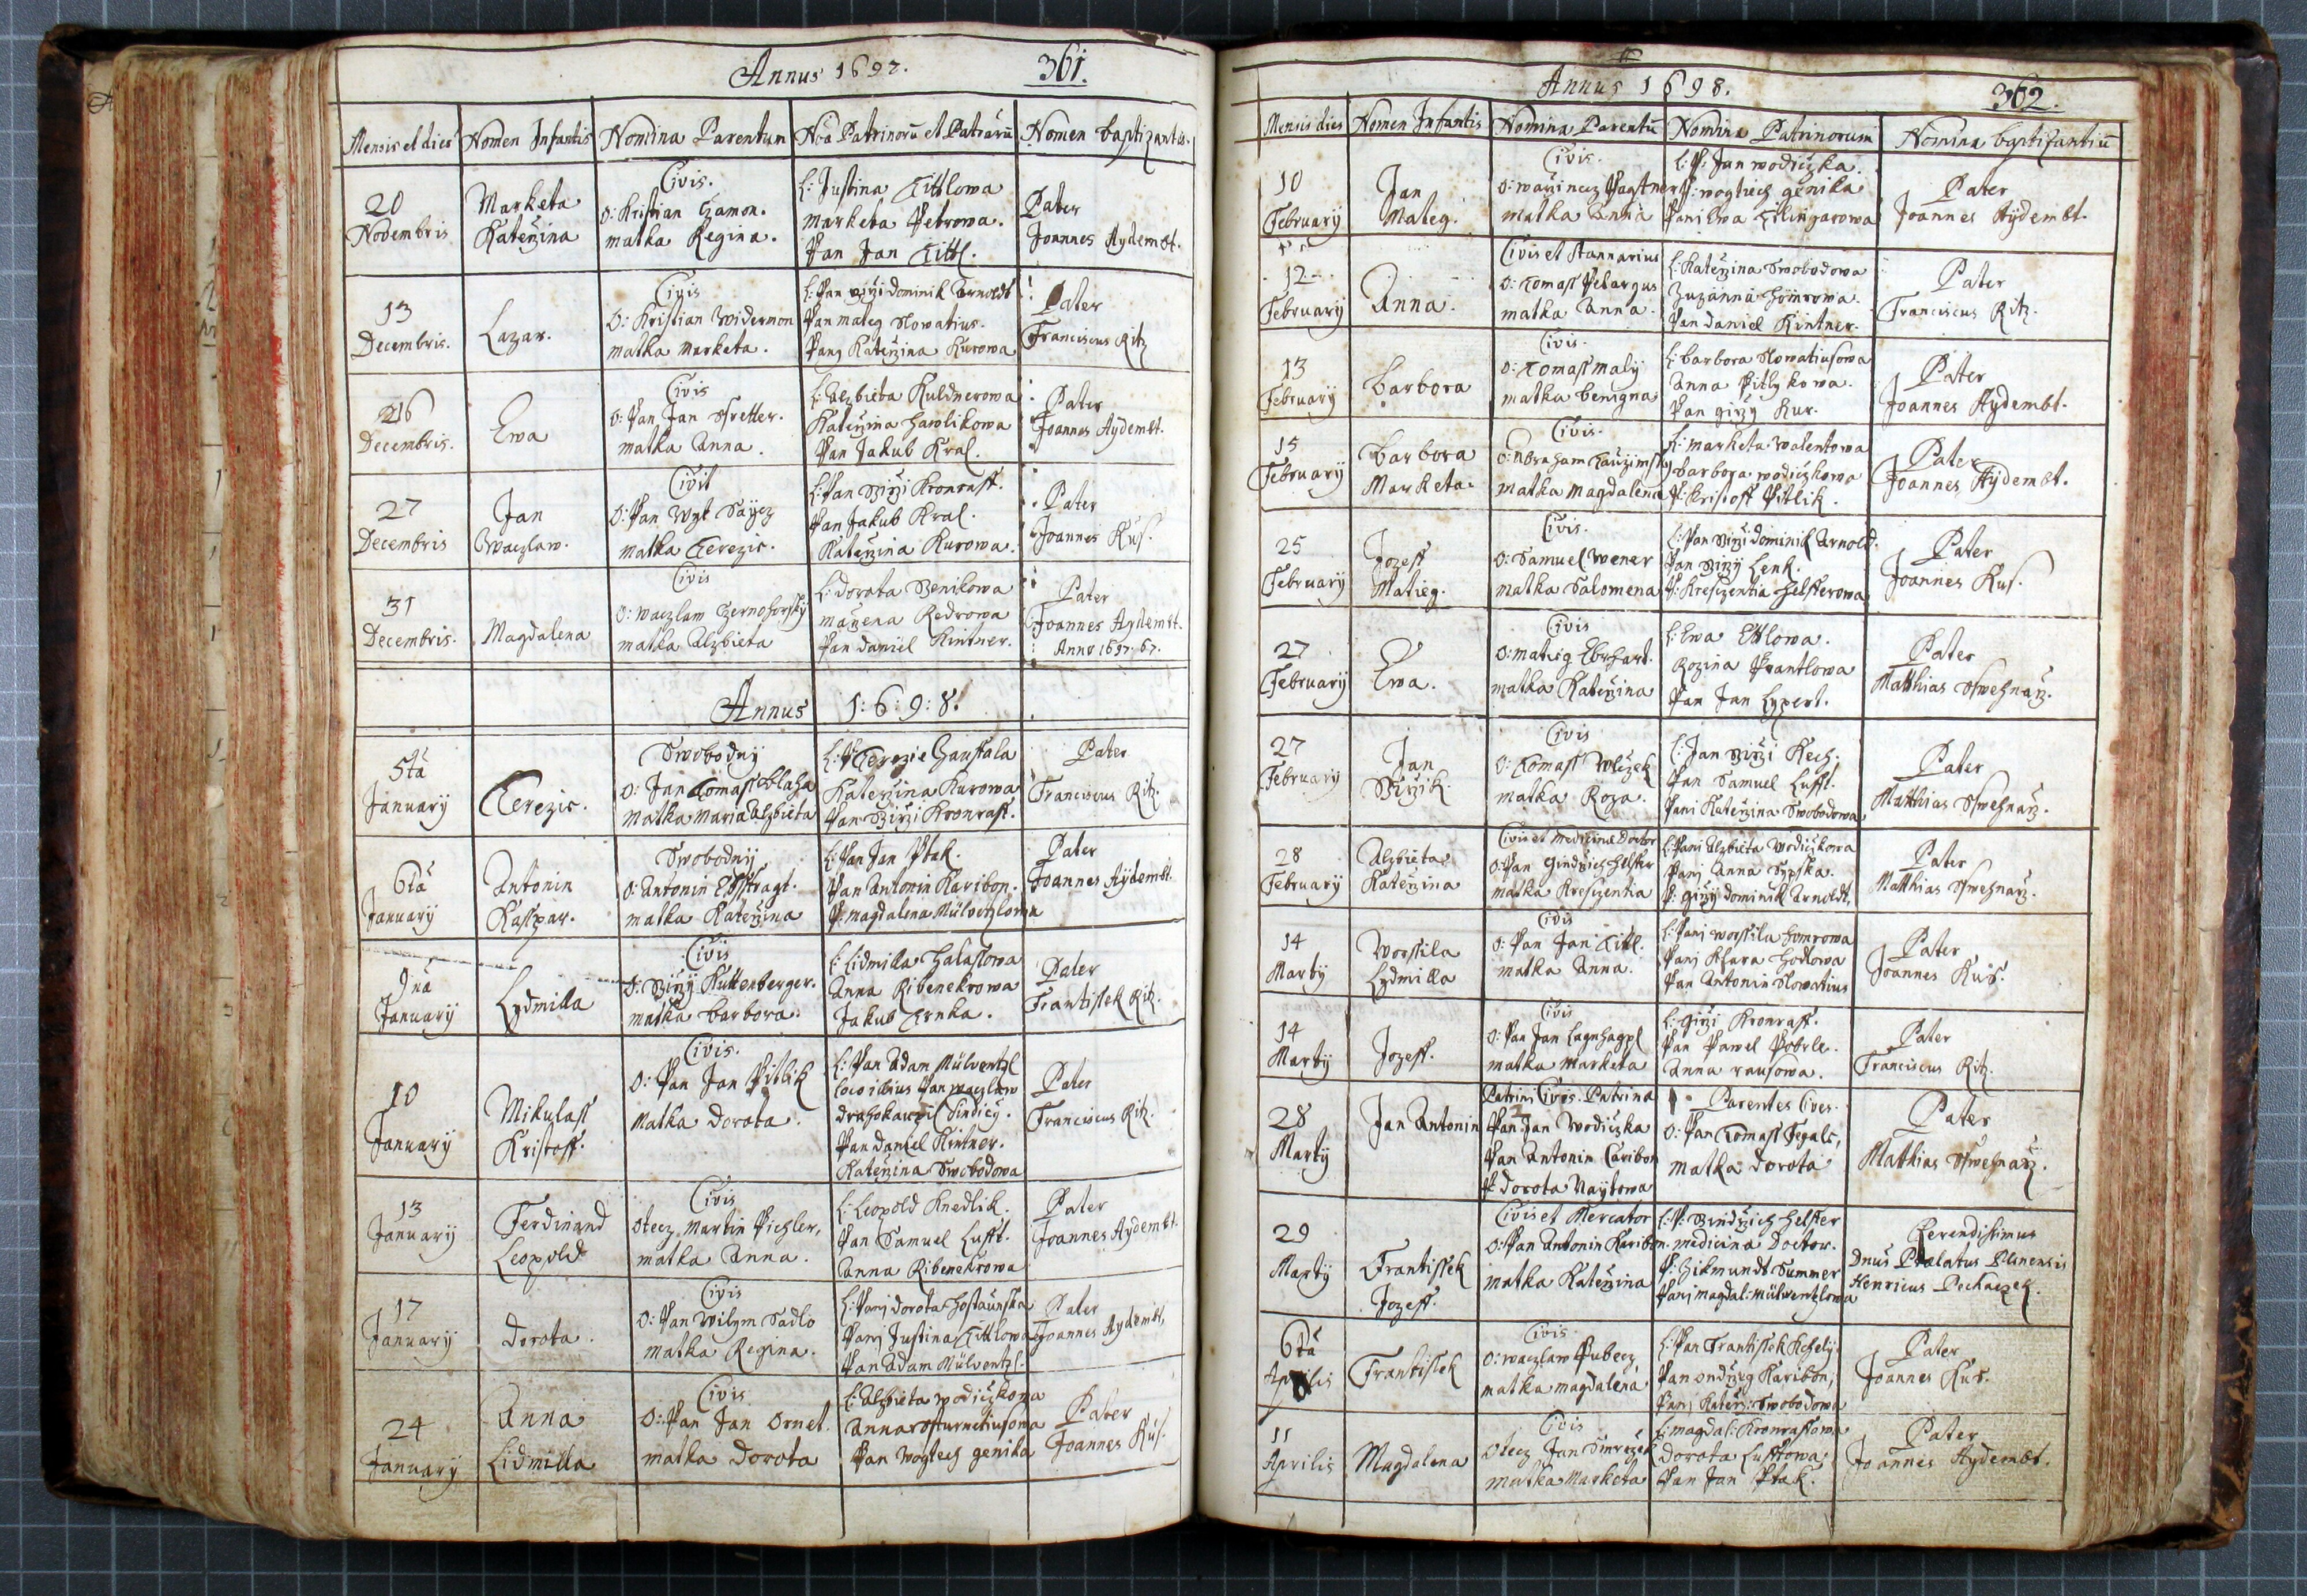 Annus 1697. 361.
Mensis et dies Nomen Infantis Nomina Parentum Noa Patrinorū et Patrarū Nomen baptizantis.
20
Novembris
Marketa
Kateržina
Civis.
O: Kristian Hamon.
matka Regina.
L: Justina Tittlowa
Marketa Petrowa.
Pan Jan Tittl.
Pater
Joannes Aydembt.
13
Decembris.
Lazar.
Civis
O: Kristian Widermon
matka Marketa.
L: Pan Girži Dominik Arnoldt
Pan Mateg Nowatius.
Panj Kateržina Kurowa
Pater
Franciscus Ritz
26
Decembris.
Ewa
Civis
O: Pan Jan Sfretter.
matka Anna.
L: Alzbieta Kuldnerowa
Kateržina Hawlikowa
Pan Jakub Kral.
Pater
Joannes Aydembt.
27
Decembris
Jan
Waczlaw.
Civis
O: Pan Wyt Saycz
matka Terezie.
L: Pan Girži Kronraff.
Pan Jakub Kral.
Kateržina Kurowa.
Pater
Joannes Kus.
31
Decembris.
Magdalena
Civis
O: Waczlaw Czernohorsky
matka Alzbieta
L: Dorota Benikowa
Mařena Kedrowa
Pan Daniel Kintner.
Pater
Joannes Aydembt.
Anno 1697. 67.
Annus 1:6:9:8.
5ta
January
Terezie.
Swobodny
O: Jan Tomass Blaha
Matka Maria Alzbieta
L: P: Terezie Haustala
Kateržina Kurowa
Pan Girži Kronraff.
Pater
Franciscus Ritz.
6ta
January
Antonin
Kasspar.
Swobodny
O: Antonin Ebstragt.
matka Kateržina
L: Pan Jan Ptak.
Pan Antonin Karibon.
P: Magdalena Mülventzlowa
Pater
Joannes Aydembt.
9na
January
Lydmilla
Civis
O: Girži Kuttenberger.
matka Barbora.
L: Lidmilla Halassowa
Anna Ribenekrowa
Jakub Trnka.
Pater
Frantissek Ritz.
10
January
Mikulass
Kristoff.
Civis.
O: Pan Jan Pitlik
Matka Dorota.
L: Pan Adam Mülventzl
loco illius Pan Waczlaw
Drahokaupil Sindicy.
Pan Daniel Kintner.
Kateržina Swobodowa
Pater
Franciscus Ritz.
13
January
Ferdinand
Leopold
Civis
Otecz Martin Pichler,
matka Anna.
L: Leopold Knedlik.
Pan Samuel Lufft.
Anna Ribenekrowa
Pater
Joannes Aydembt.
17
January
Dorota.
Civis
O: Pan Wilym Sadlo
Matka Regina.
L: Panj Dorota Hostaunska
Panj Justina Tittlowa
Pan Adam Mülventzl.
Pater
Joannes Aydembt,
24
January
Anna
Lidmilla
Civis
O: Pan Jan Ornet.
matka Dorota
L: Alzbieta Wodiczkowa
Anna
Pan Wogtech Genika
Pater
Joannes Kus.
Annus 1698. 362.
Mensis dies Nomen Infantis Nomina Parentū Nomina Patrinorum Nomina baptizantiū
10
February
Jan
Mateg.
Civis.
O: Wawřinecz Pastner
matka Anna
L: P: Jan Wodiczka.
P: Wogtiech Genika
Panj Ewa Cilingarowa
Pater
Joannes Aydembt.
12
February
Anna.
Civis et Stannarius
O: Tomass Pelargus
matka Anna.
L: Kateržina Swobodowa
Zuzanna Homrowa.
Pan Daniel Kintner.
Pater
Franciscus Ritz.
13
February
Barbora
Civis.
O: Tomass Maly
matka Benigna
L: Barbora Nowatiusowa
Anna Pitlykowa.
Pan Girži Kur.
Pater
Joannes Aydembt.
15
February
Barbora
Marketa.
Civis.
O: Abraham Kauzimsky
matka Magdalena
L: Marketa Walentowa
Barbora Wodiczkowa
P: Kristoff Pitlik.
Pater
Joannes Aydembt.
25
February
Jozeff
Matieg.
Civis.
O: Samuel Wener
matka Salomena
L: Pan Girži Dominik Arnold.
Pan Girži Lenk.
P: Krescentia Helfferowa
Pater
Joannes Kus.
27
February
Ewa.
Civis
O: Matieg Ebrhart.
matka Kateržina
L: Ewa Ettlowa.
Rozina Prantlowa
Pan Jan Lypert.
Pater
Matthias Sswehnarz.
27
February
Jan
Giržik.
Civis
O: Tomass Wlczek
matka Roza.
L: Jan Girži Kech.
Pan Samuel Lufft.
Pani Kateržina Swobodowa
Pater
Matthias Sswehnarz.
28
February
Alzbieta
Kateržina
Civis et Medicinæ Doctor
O: Pan Gindržich Helffer
matka Krescentia
L: Pani Alzbieta Wodiczkowa
Panj Anna Sypska.
P: Girži Dominik Arnoldt,
Pater
Matthias Sswehnarz.
14
Marty
Worssila
Lydmilla
Civis
O: Pan Jan Tittl.
matka Anna.
L: Panj Worssila Homrowa
Panj Klara Hodlowa
Pan Antonin Nowatius
Pater
Joannes Kus.
14
Marty
Jozeff.
Civis
O: Pan Jan Lagnhagpl
matka Marketa
L: Girži Kronraff.
Pan Pawel Pobrle.
Anna Rausowa.
Pater
Franciscus Ritz.
28
Marty
Jan Antonin
Patrini Cives. Patrina
Pan Jan Wodiczka
Pan Antonin Caribon
P: Dorota Naytowa
Parentes Cives.
O: Pan Tomass Fegalt,
matka Dorota
Pater
Mathias Sswehnarz.
29
Marty
Frantissek
Jozeff.
Civis et Mercator
O: Pan Antonin Karibon.
matka Kateržina
L: P: Gindržich Helffer
medicina Doctor.
P: Zikmundt Summer
Panj Magdal: Mülventzlowa
Rerendissimus
Dnus Prælatus Plsnensis
Henricus Pechaczek.
6ta
Aprilis
Frantissek
Civis.
O: Waczlaw Pubecz
matka Magdalena
L: Pan Frantissek Kchely.
Pan Ondržeg Karibon,
Panj Katerž: Swobodowa
Pater
Joannes Kus.
11
Aprilis
Magdalena
Civis
Otecz Jan Smrczek
matka Marketa
L: Magdal: Kronraffowa
Dorota Lufftowa.
Pan Jan Ptak.
Pater
Joannes Aydembt.